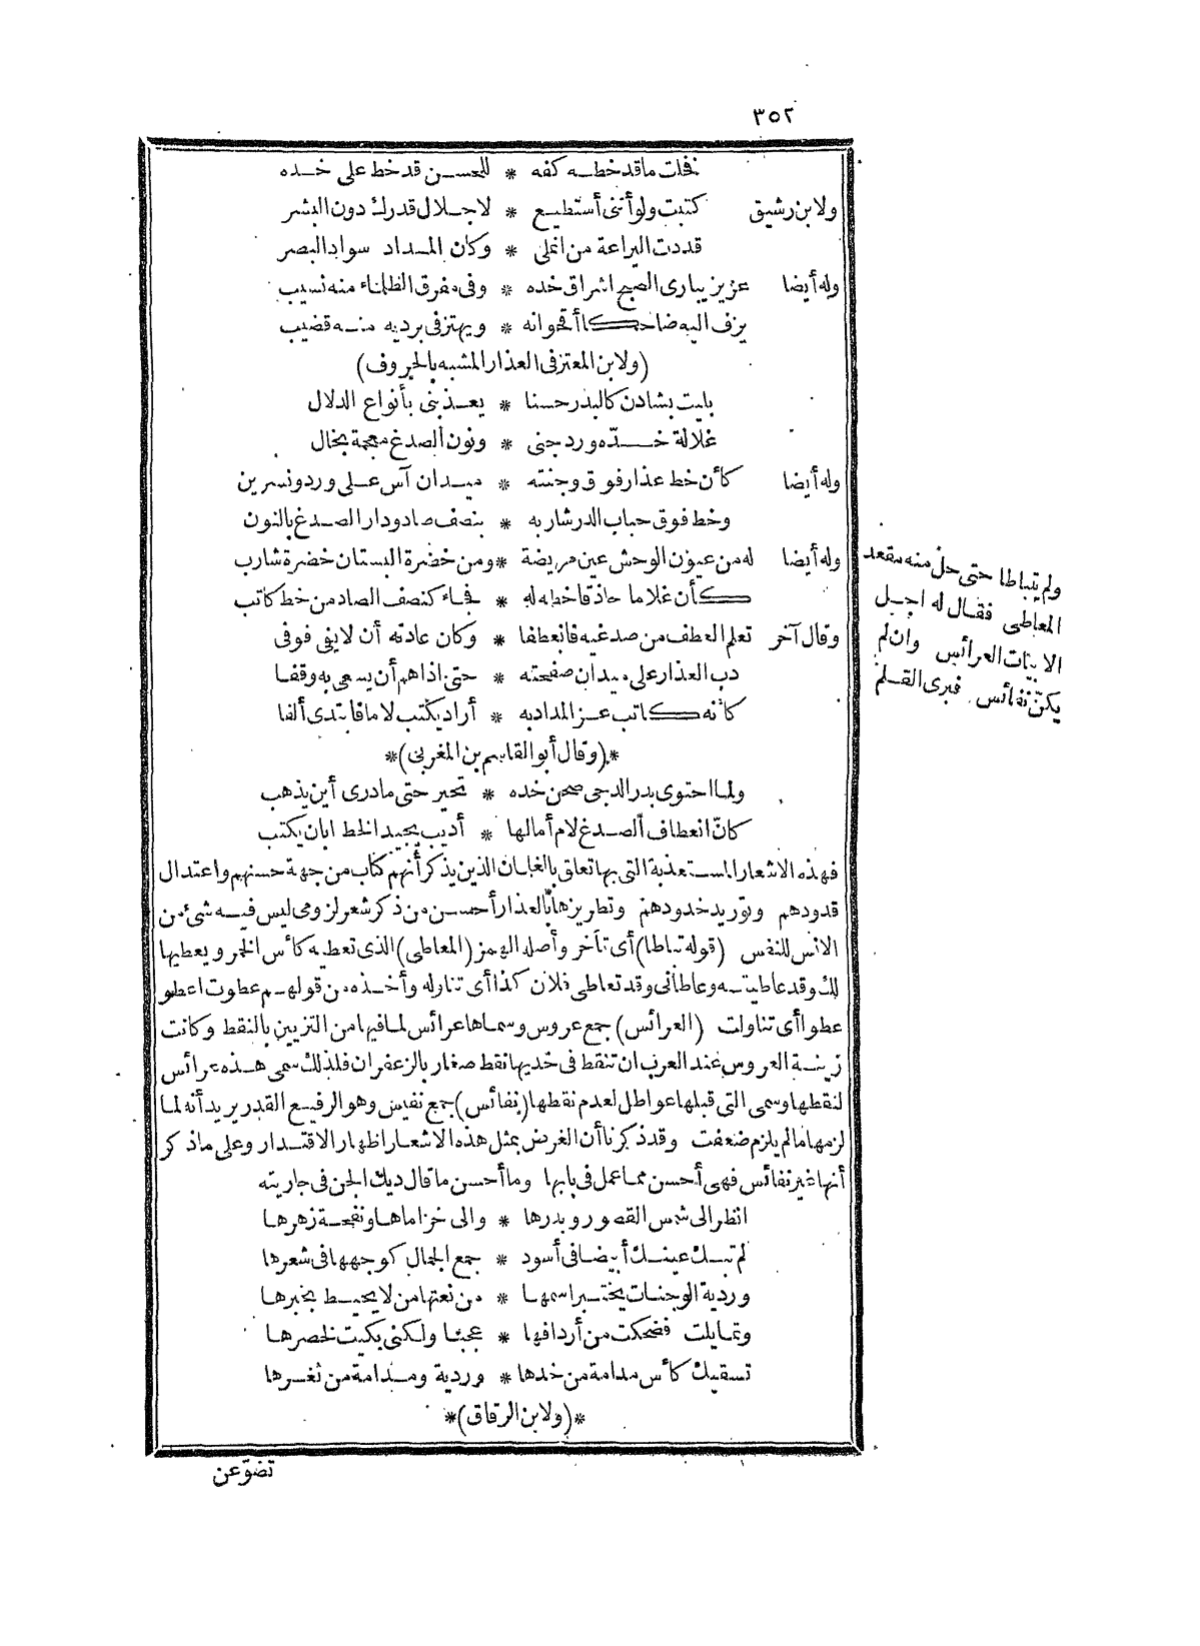 ٣٥٢
نخلت ما قد خطه كفه * للحسن قد خط على خده
ولابن رشيق كتبت ولو أننى أستطيع * لاجلال قدرك دون البشر
قددت اليراعة من انملى * وكان المداد سواد البصر
وله أيضا عزيز يبارى الصبح اشراق خده * وفى مفرق الظلماء منه نسيب
يزف اليه ضاحكا أقحوانه * ويهتز فى برديه منه قضيب
(ولابن المعتز فى العذار المشبه بالحروف)
بليت بشادن كالبدر حسنا * يعذبنى بأنواع الدلال
غلالة خدّه ورد جنى * ونون الصدغ معجمة بخال
وله أيضا كأن خط عذار فوق وجنته * ميدان آس على ورد ونسرين
وخط فوق حباب الدر شاربه * بنصف صاد ودار الصدغ بالنون
وله أيضا له من عيون الوحش عين مريضة * ومن خضرة البستان خضرة شارب
كأن غلاما حاذقا خطه له * فجاء كنصف الصاد من خط كاتب
وقال آخر تعلم العطف من صدغيه فانعطفا * وكان عادته أن لا يفى فوفى
دب العذار على ميدان صفحته * حتى اذا هم أن يسعى به وقفا
كأنه كاتب عز المداد به * أراد يكتب لاما فابتدى ألفا
*(وقال أبو القاسم بن المغربى)*
ولما احتوى بدر الدجى صحن خده * تحير حتى ما درى أين يذهب
كانّ انعطاف الصدغ لام أمالها * أديب يجيد الخط ايان يكتب
فهذه الاشعار المستعذبة التى بها تعلق بالغلمان الذين يذكر أنهم كتاب من جهة حسنهم واعتدال
قدودهم وتوريد خدودهم وتطريزها بالعذار أحسن من ذكر شعر لزومى ليس فيه شئ من
الانس للنفس (قوله تباطا) أى تأخر وأصله الهمز (المعاطى) الذى تعطيه كأس الخمر ويعطيها
لك وقد عاطيته وعاطانى وقد تعاطى فلان كذا أى تناوله وأخذه من قولهم عطوت اعطو
عطوا أى تناولت (العرائس) جمع عروس وسماها عرائس لما فيها من التزيين بالنقط وكانت
زينة العروس عند العرب ان تنقط فى خديها نقط صغار بالزعفران فلذلك سمى هذه عرائس
لنقطها وسمى التى قبلها عواطل لعدم نقطها (نفائس) جمع نفيس وهو الرفيع القدر يريد أنه لما
لزمها ما لم يلزم ضعفت وقد ذكرنا أن الغرض بمثل هذه الاشعار اظهار الاقتدار وعلى ما ذكر
أنها غير نفائس فهى أحسن مما عمل فى بابها وما أحسن ما قال ديك الجن فى جاريته
انظر الى شمس القصور وبدرها * والى خزاماها ونفحة زهرها
لم تبك عينك أبيضا فى أسود * جمع الجمال كوجهها فى شعرها
وردية الوجنات يختبر اسمها * من نعتها من لا يحيط بخبرها
وتمايلت فضحكت من أردافها * عجبا ولكنى بكيت لخصرها
تسقيك كأس مدامة من خدها * وردية ومدامة من ثغرها
*(ولابن الرقاق)*
تضوّعن
ولم يتباطا حتى حل منه مقعد
المعاطى فقال له اجل
الابيات العرائس وان لم
يكنّ نفائس فبرى القلم